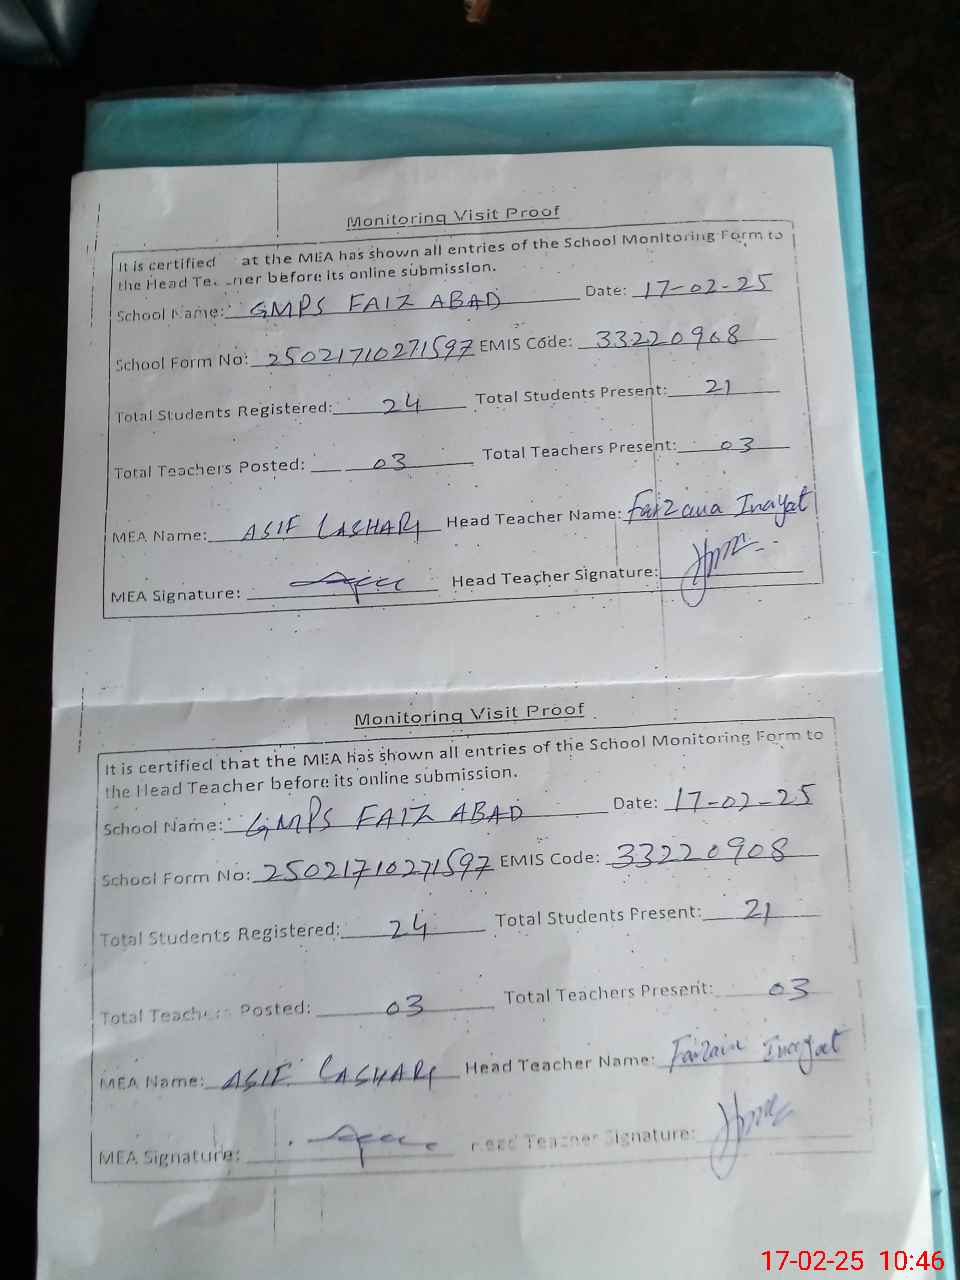 Monitoring Visit Proof
It is certified at the MEA has shown all entries of the School Monitoring Form to
the Head Te. .ner before its online submission.
School Name: GMPS FAIZ ABAD Date: 17-02-25
School Form No: 25021710271597 EMIS Code: 33220908
Total Students Registered: 24 Total Students Present: 21
Total Teachers Posted: 03 Total Teachers Present: 03
MEA Name: ASIF LASHARI Head Teacher Name: Faizana Inayat
MEA Signature: Head Teacher Signature:
Monitoring Visit Proof
It is certified that the MEA has shown all entries of the School Monitoring Form to
the Head Teacher before its online submission.
School Name: GMPS FAIZ ABAD Date: 17-02-25
School Form No: 25021710271597 EMIS Code: 33220908
Total Students Registered: 24 Total Students Present: 21
Total Teachers Posted: 03 Total Teachers Present: 03
MEA Name: ASIF LASHARI Head Teacher Name: Inayat
MEA Signature: Head Teacher Signature:
17-02-25 10:46